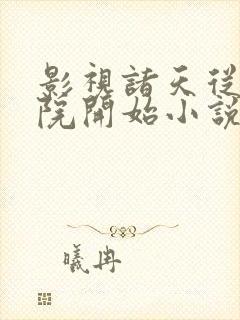 影視諸天從
院開始小說
曦冉